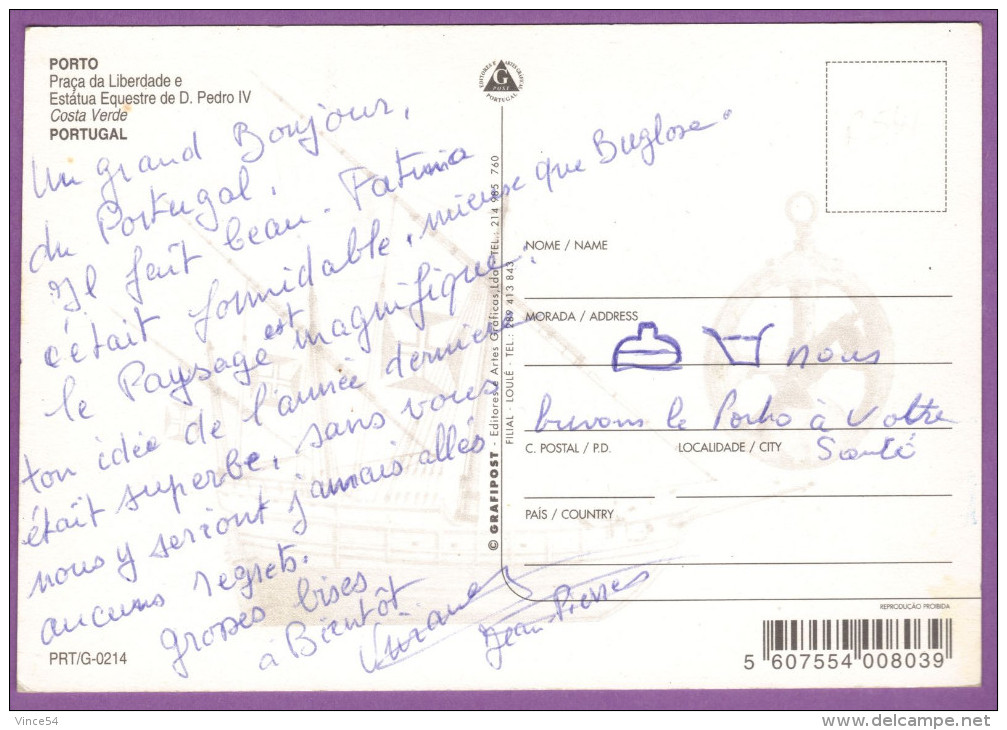 PORTO
Praça da Liberdade e
Estátua Equestre de D. Pedro IV
Costa Verde
PORTUGAL
Un grand Bonjour,
du Portugal.
Il fait beau. Fatima
c'était formidable, mieuse que Buglose.
le Paysage est magnifique.
ton idée de l'année dernière
était superbe, sans vous
nous y seriont jamais allés
aucuns regrets.
grosses bises
à Bientôt
Jean Pierre
PRT/G-0214
EDITORES E ARTES GRÁFICAS
G
POST
PORTUGAL
© GRAFIPOST - Editores e Artes Gráficas, Lda. TEL.: 214 985 760
FILIAL - LOULÉ - TEL.: 289 413 843
NOME / NAME
MORADA / ADDRESS
nous
buvons le Porto à Votre
Santé
C. POSTAL / P.D.
LOCALIDADE / CITY
PAÍS / COUNTRY
REPRODUÇÃO PROIBIDA
5 607554 008039
Vince54
delcampe.net